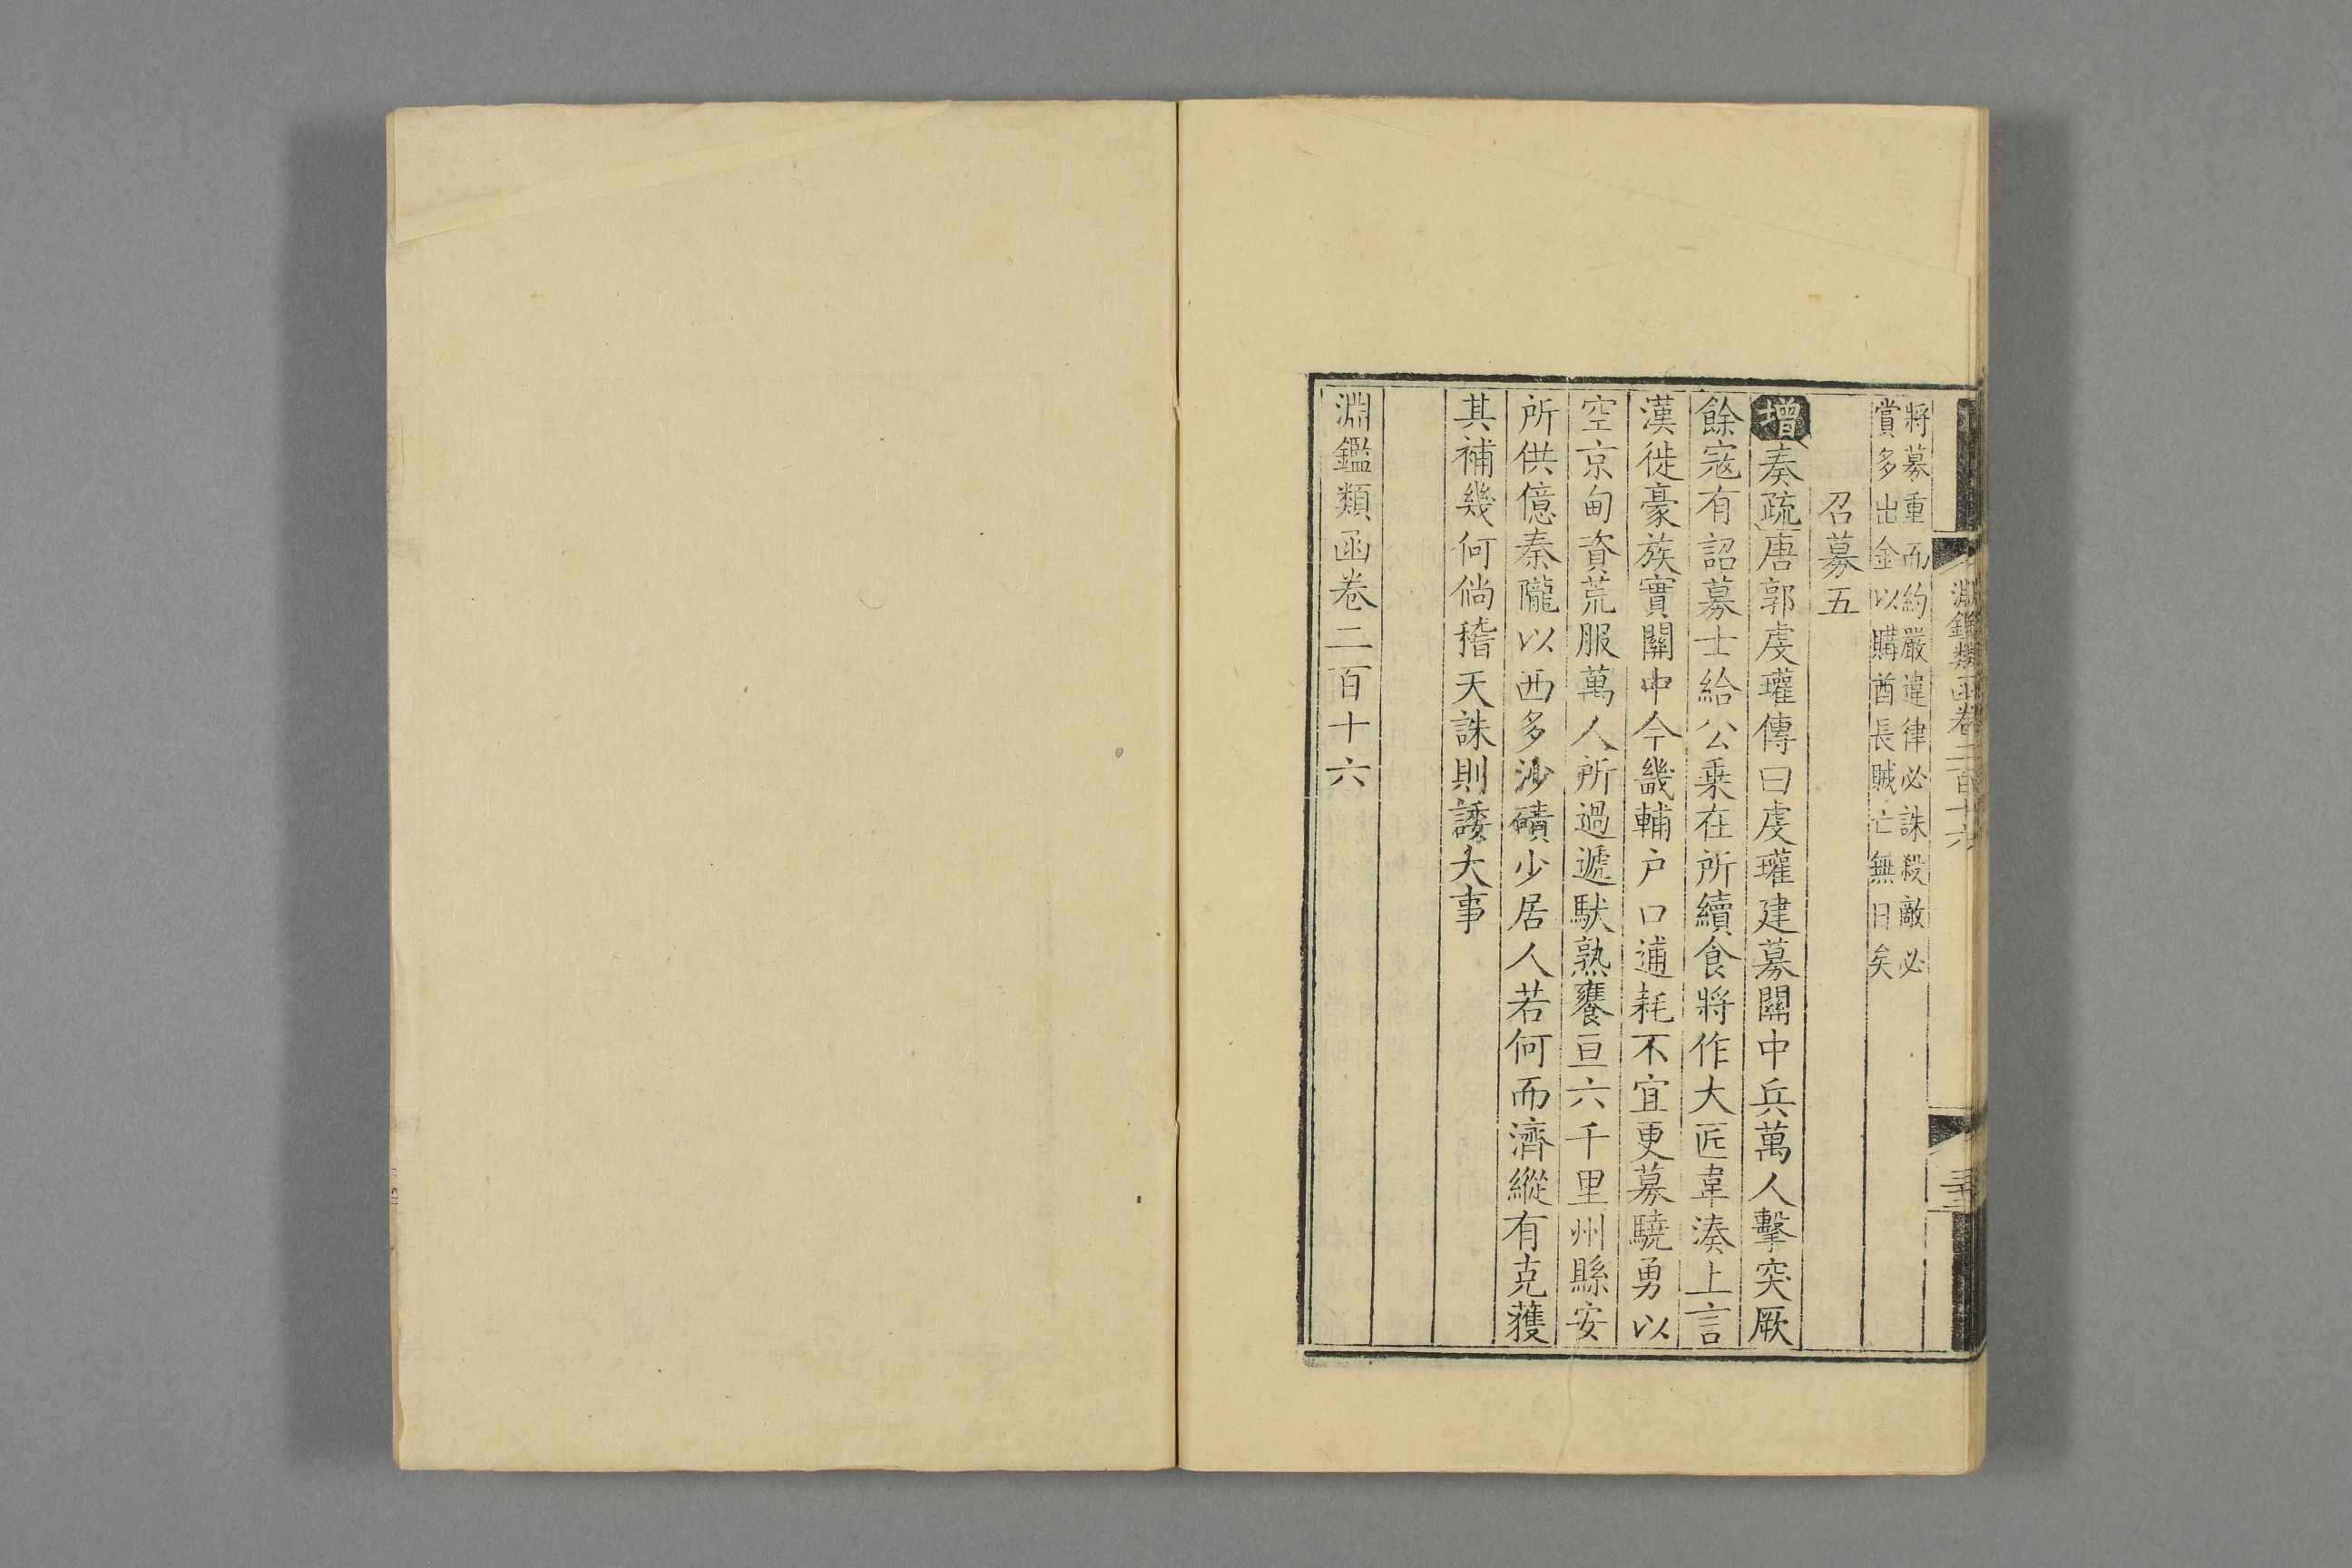 淵鑑類函卷二百十六
將募重而約嚴違律必誅殺敵必
賞多出金以購酋長賊亡無日矣
召募五
增奏疏唐郭虔瓘傳曰虔瓘建募關中兵萬人擊突厥
餘寇有詔募士給公乗在所續食將作大匠韋湊上言
漢徙豪族實關中今畿輔户口逋耗不宜更募驍勇以
空京甸資荒服萬人所過遞馱熟饔亘六千里州縣安
所供億秦隴以西多沙磧少居人若何而濟縱有克獲
其補幾何倘稽天誅則諉大事
淵鑑類函卷二百十六